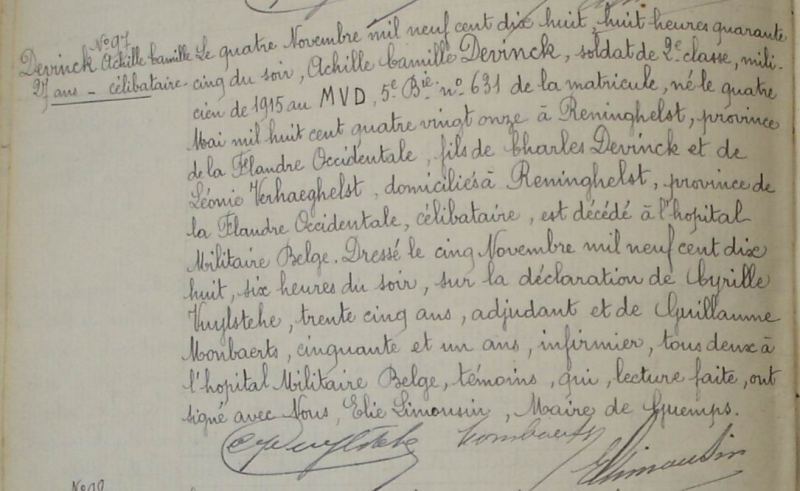 N° 97
Devinck Achille Camille
27 ans - célibataire.
Le quatre Novembre mil neuf cent dix huit, huit heures quarante
cinq du soir, Achille Camille Devinck, soldat de 2e classe, mili-
cien de 1915 au MVD, 5e Bie n° 631 de la matricule, né le quatre
Mai mil huit cent quatre vingt onze à Reninghelst, province
de la Flandre Occidentale, fils de Charles Devinck et de
Léonie Verhaeghelst, domiciliés à Reninghelst, province de
la Flandre Occidentale, célibataire, est décédé à l'hopital
Militaire Belge. Dressé le cinq Novembre mil neuf cent dix
huit, six heures du soir, sur la déclaration de Cyrille
Vuylsteke, trente cinq ans, adjudant et de Guillaume
Monbaerts, cinquante et un ans, infirmier, tous deux à
l'hopital Militaire Belge, témoins, qui, lecture faite, ont
signé avec Nous, Elie Limousin, Maire de Guemps.
CyVuylsteke
ELimousin